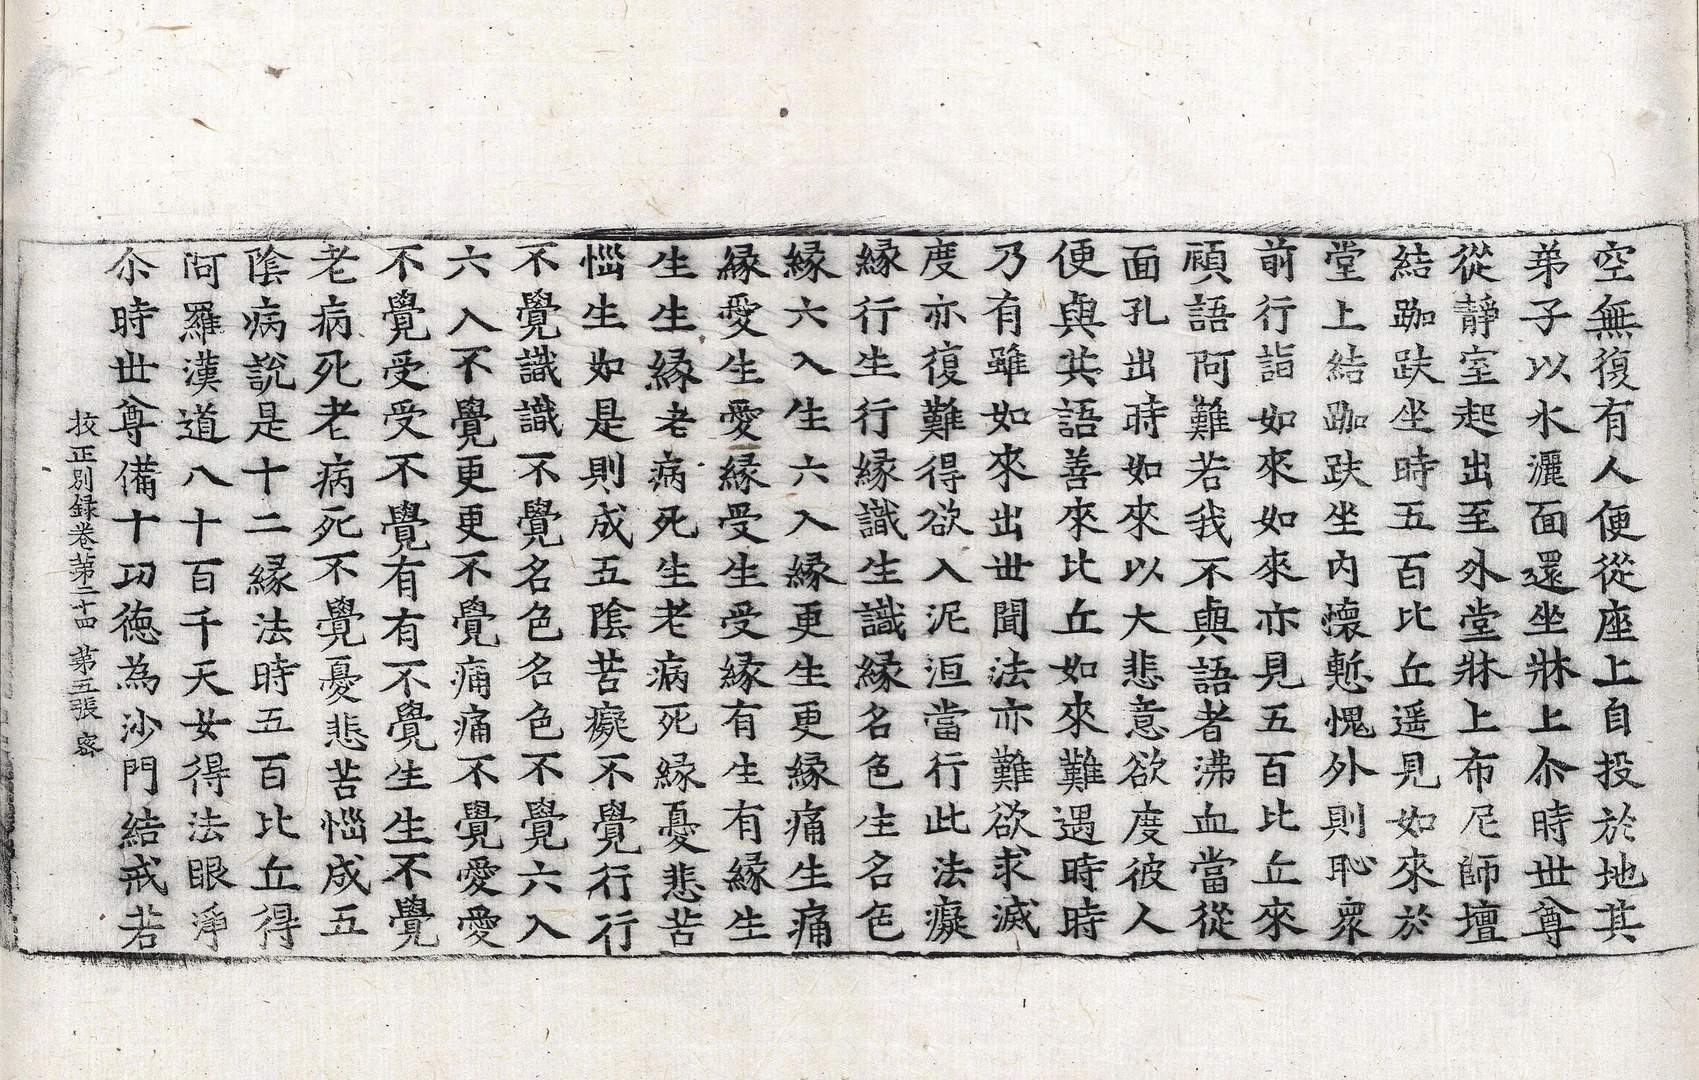 空無復有人便從座上自投於地其
弟子以水灑面還坐牀上尒時世尊
從靜室起出至外堂牀上布尼師壇
結跏趺坐時五百比丘遥見如來於
堂上結跏趺坐内懷慙愧外則恥衆
前行詣如來如來亦見五百比丘來
顧語阿難若我不與語者沸血當從
面孔出時如來以大悲意欲度彼人
便與共語善來比丘如來難遇時時
乃有雖如來出世聞法亦難欲求滅
度亦復難得欲入泥洹當行此法癡
縁行生行縁識生識縁名色生名色
縁六入生六入縁更生更縁痛生痛
縁愛生愛縁受生受縁有生有縁生
生生縁老病死生老病死縁憂悲苦
惱生如是則成五陰苦癡不覺行行
不覺識識不覺名色名色不覺六入
六入不覺更更不覺痛痛不覺愛愛
不覺受受不覺有有不覺生生不覺
老病死老病死不覺憂悲苦惱成五
陰病説是十二縁法時五百比丘得
阿羅漢道八十百千天女得法眼淨
尒時世尊備十功徳為沙門結戒若
挍正別録卷苐二十四 苐五張 密